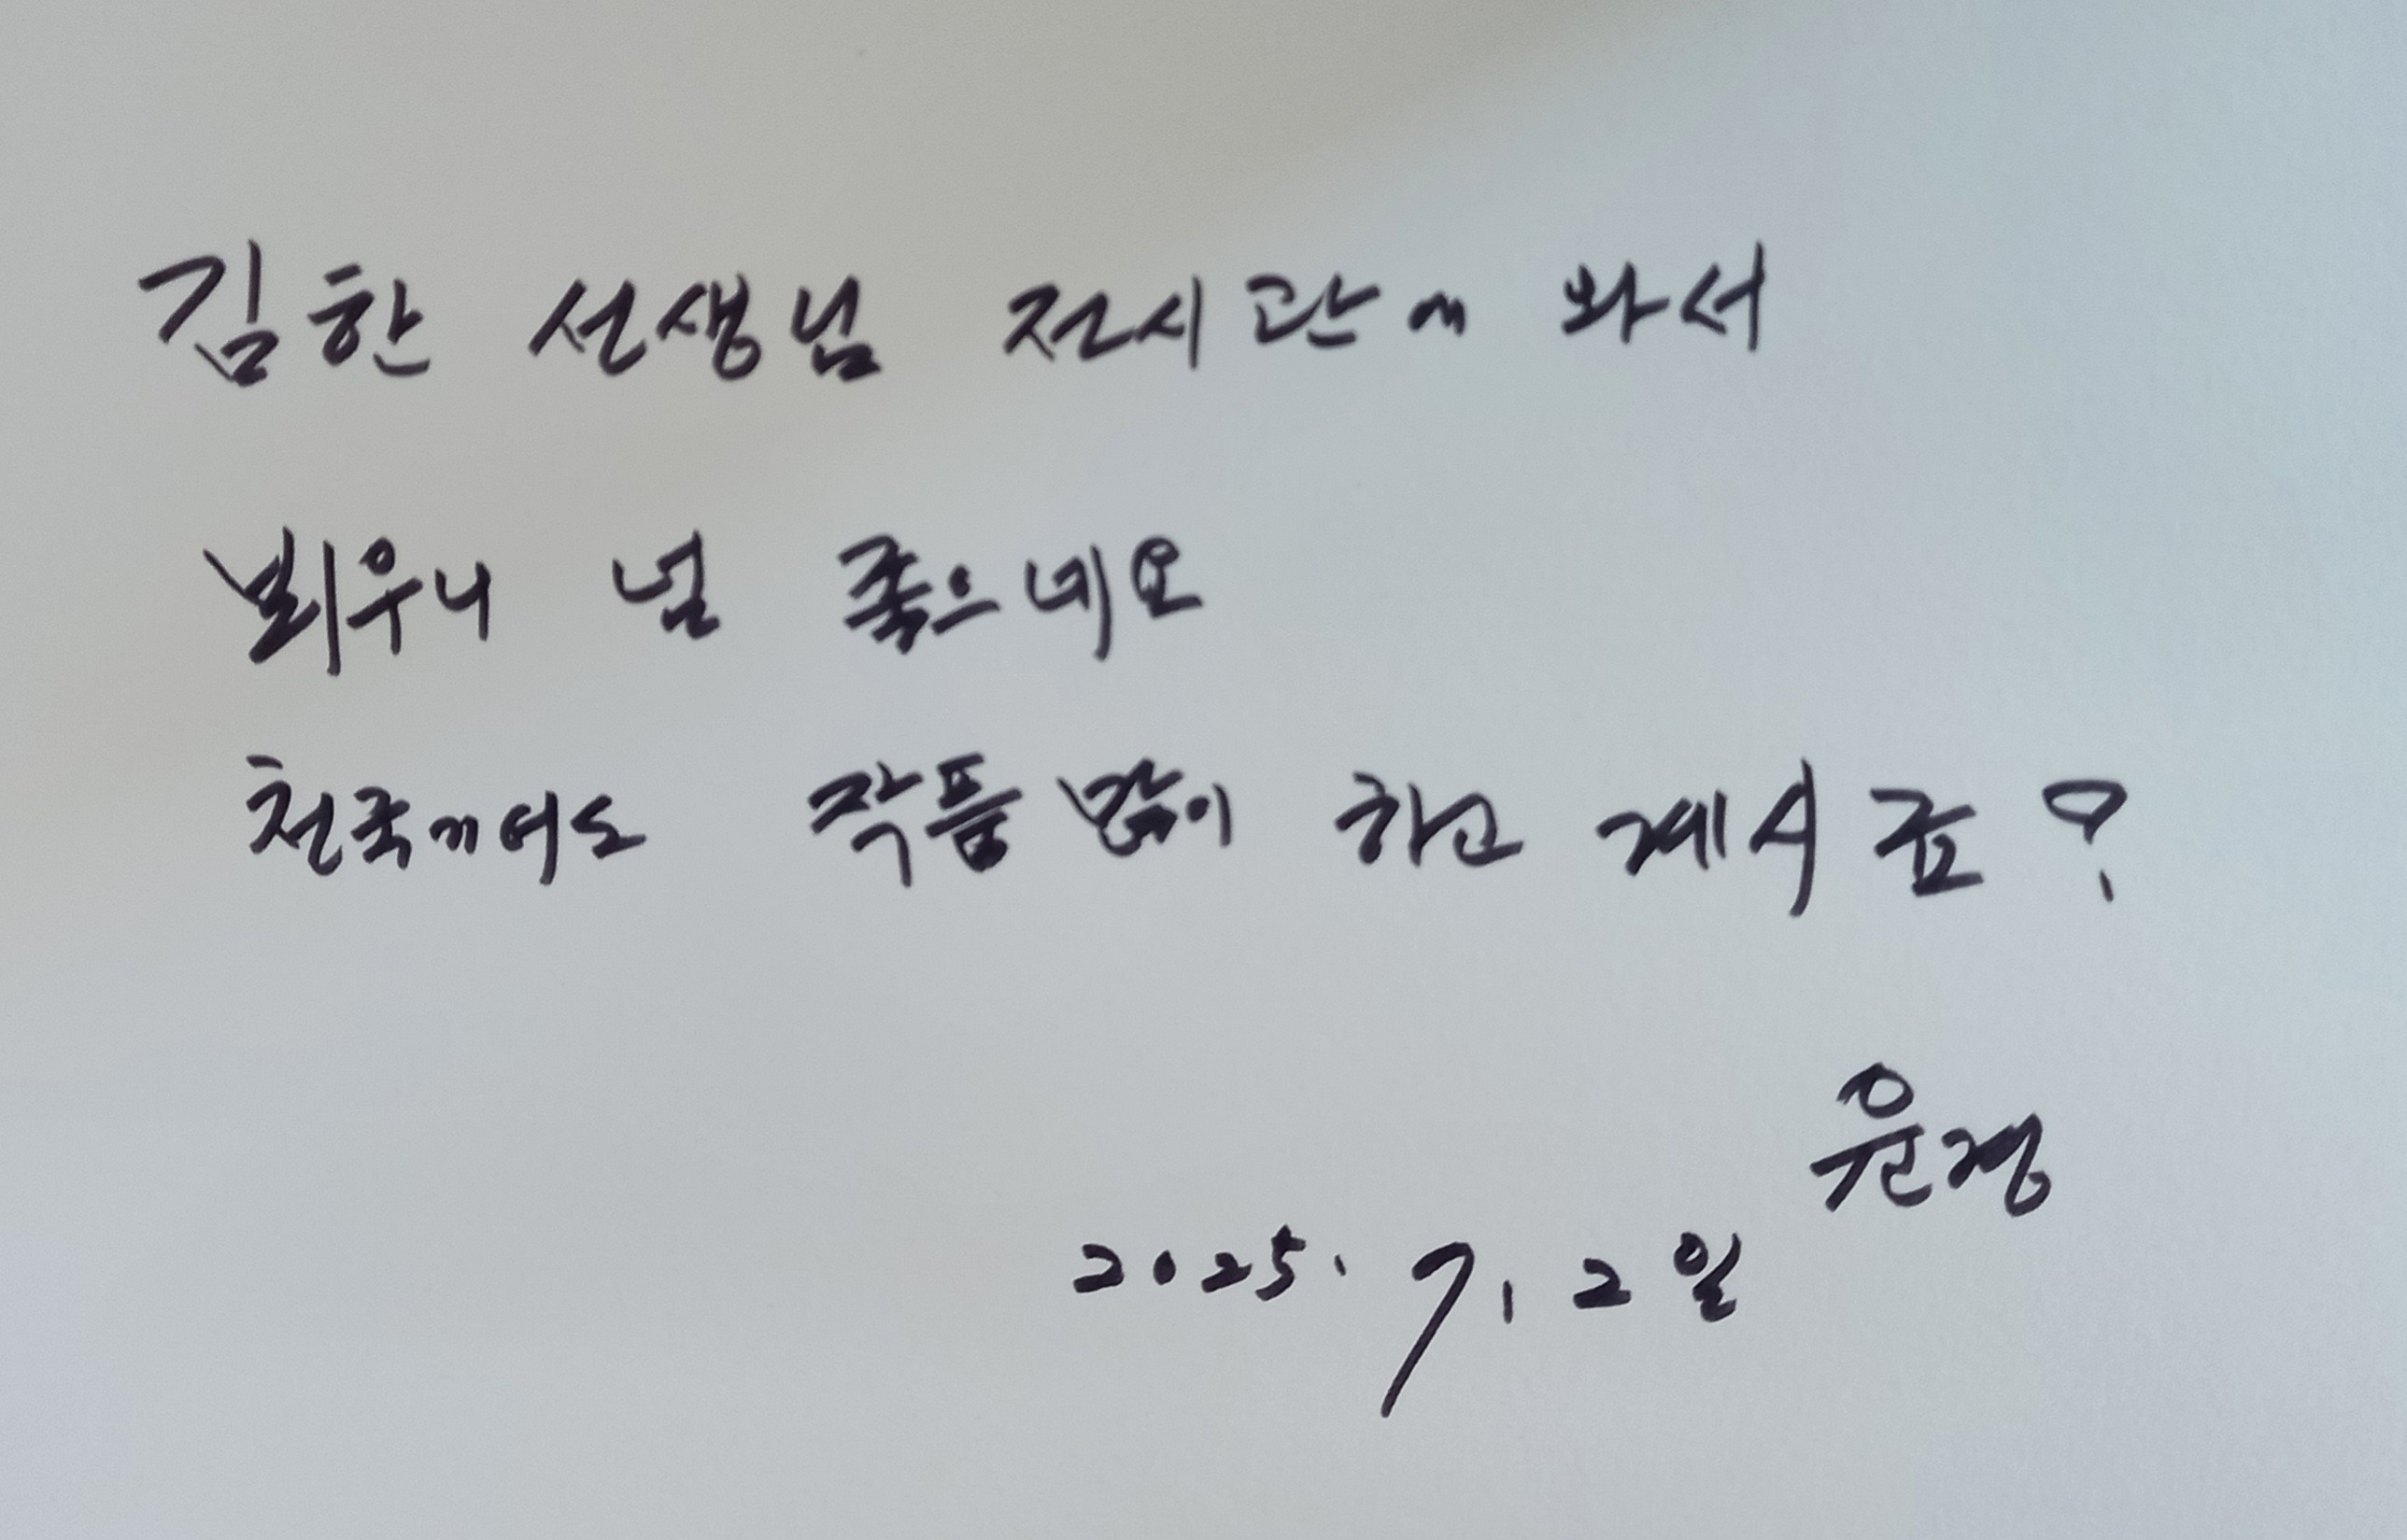 김한 선생님 전시관에 와서
뵈우니 넘 좋으네요
천국에서도 작품 많이 하고 계시죠?
윤경
2025. 7. 2일